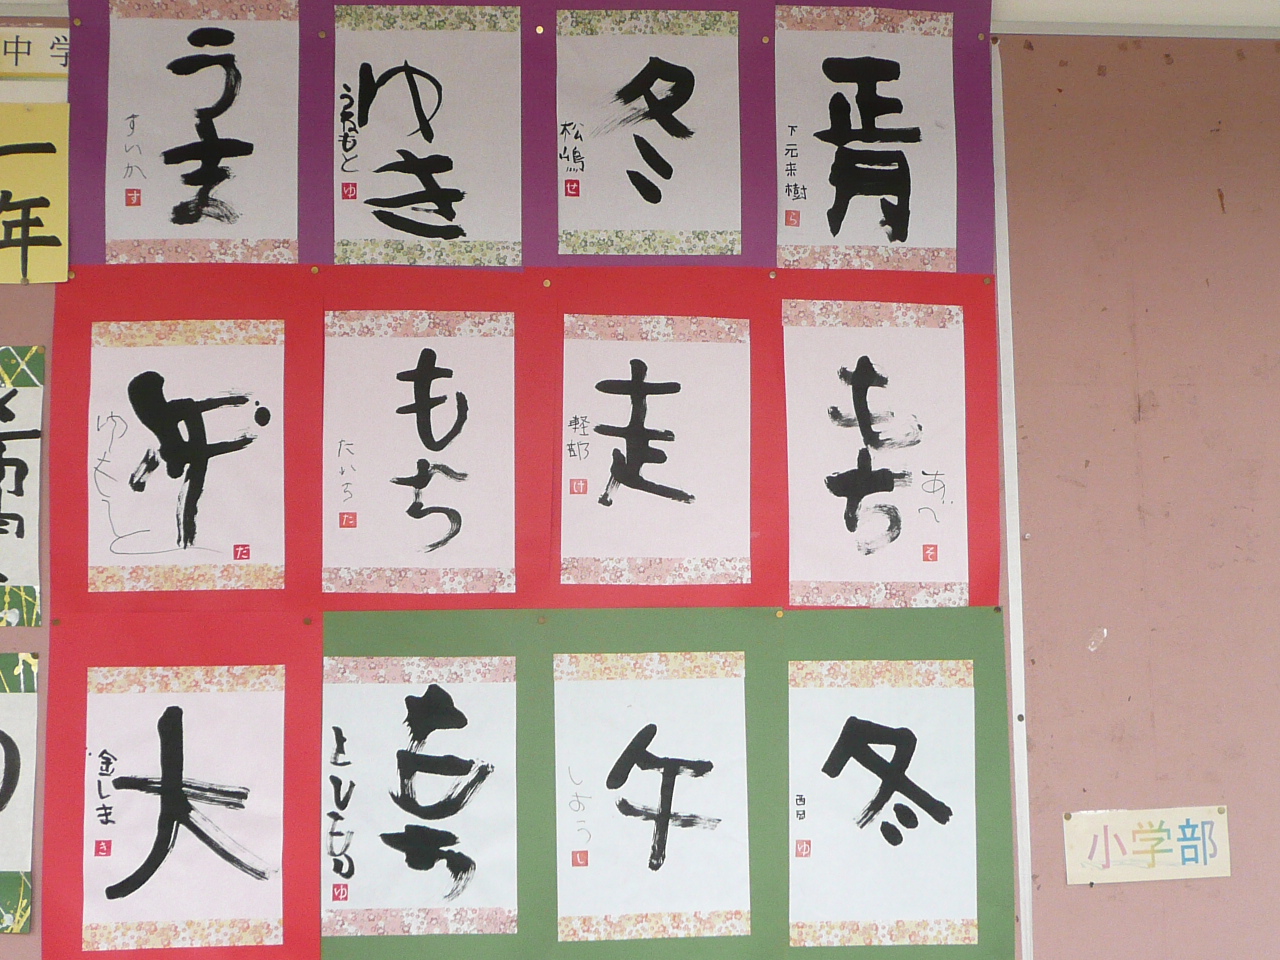 中学
一年
正月
下元来樹
ら
冬
松嶋
せ
ゆき
うねもと
ゆ
うま
すいか
す
もち
そ
走
け
もち
たいち
た
午
ゆもと
だ
冬
西岡
ゆ
午
しおう
し
もち
ゆ
大
金しま
き
小学部